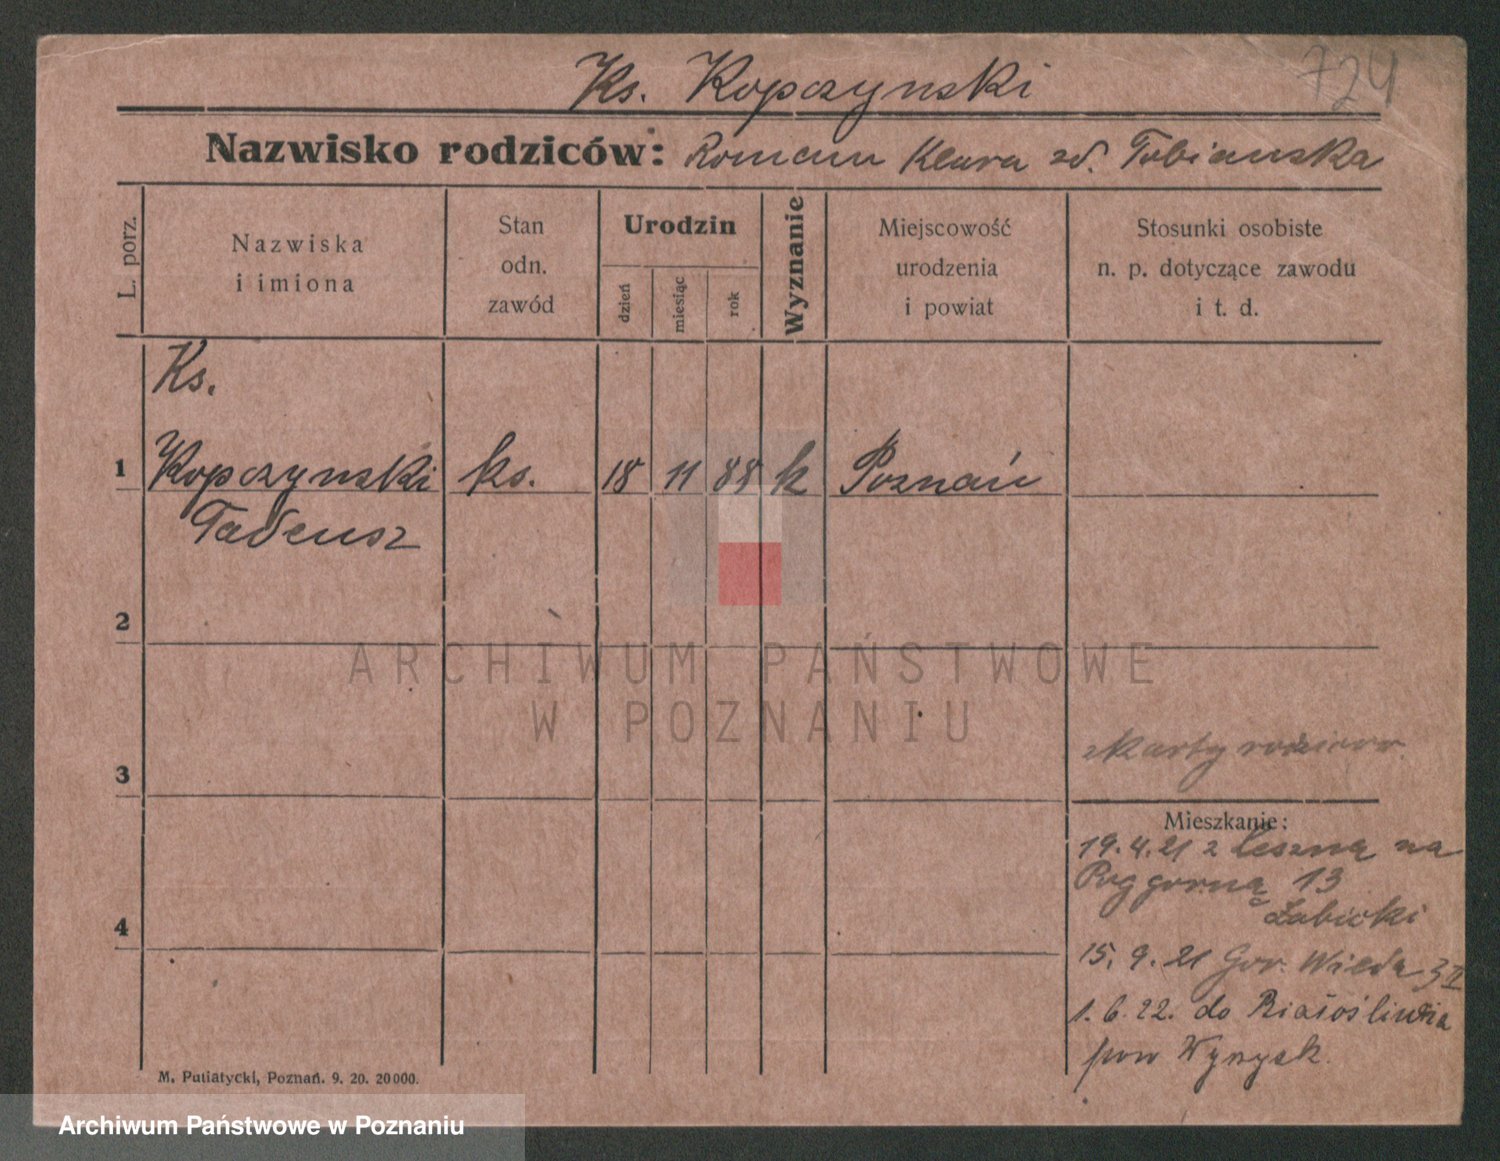 724
Ks. Kopczynski
Nazwisko rodziców: Roman Klara zd. Tobianska
L. porz.
Nazwiska
i imiona
Stan
odn.
zawód
Urodzin
dzień
miesiąc
rok
Wyznanie
Miejscowość
urodzenia
i powiat
Stosunki osobiste
n. p. dotyczące zawodu
i t. d.
Ks.
1 Kopczynski ks. 18 11 88 k Poznań
Tadeusz
2
ARCHIWUM PAŃSTWOWE
W POZNANIU
z karty rodziców
3
Mieszkanie:
19.4.21 z Leszna na
13
4
15. 9. 21 Gór. Wilda 3 II
1. 6. 22. do Białośliwia
pow Wyrzysk.
M. Putiatycki, Poznań. 9. 20. 20000.
Archiwum Państwowe w Poznaniu